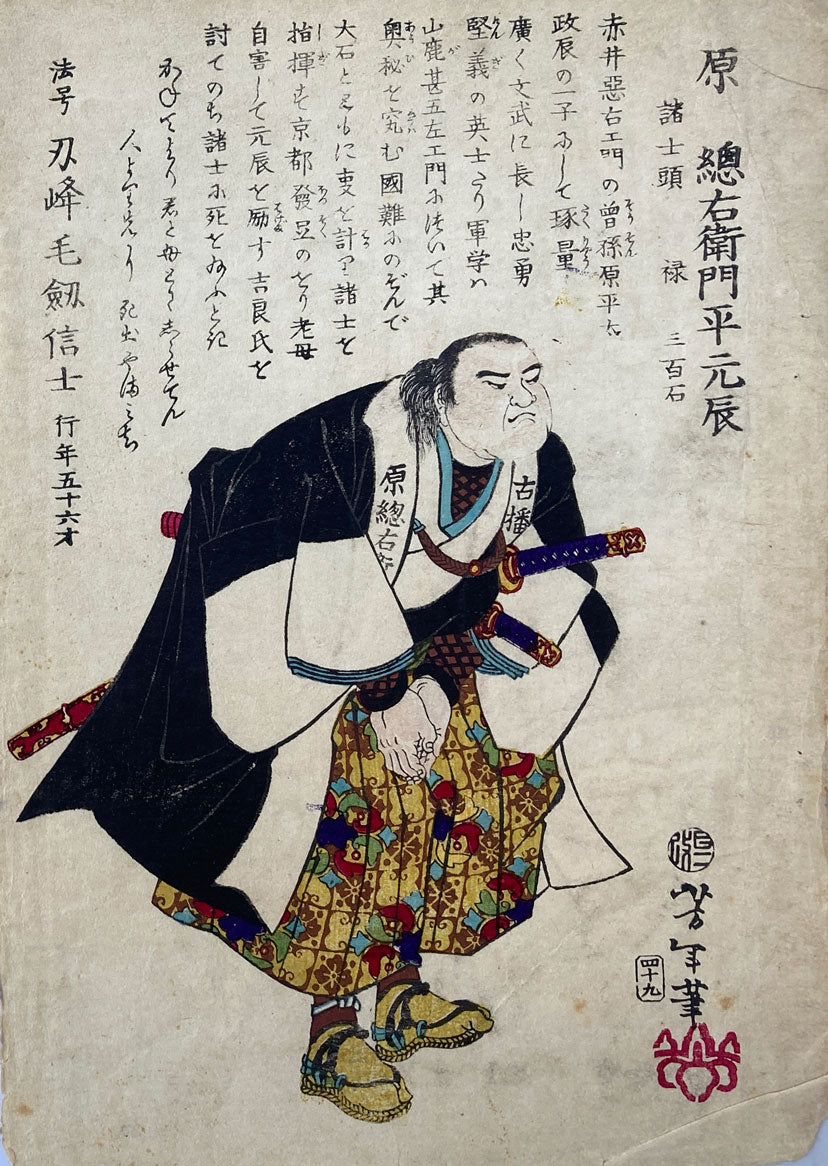 原 總右衛門平元辰
諸士頭 禄 三百石
赤井惡右エ門の曽孫原平六
政辰の一子にして琢量
廣く文武に長し忠勇
堅義の英士たり軍学ハ
山鹿甚五左エ門に次いて其
奥秘を究む國難にのぞんで
大石ともに事を計り諸士を
指揮す京都發足のをり老母
自害して元辰を励す吉良氏を
討てのち諸士に死を
人よ
死出
法号 刃峰毛劔信士 行年五十六才
原總右
古播
芳年筆
四十九